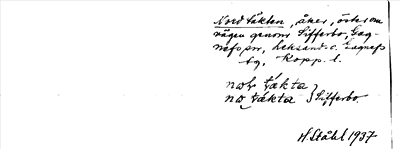 Nordtäkten, åker, öster om
vägen genom Sifferbo, Gag-
nefs sn, Leksand o. Gagnefs
tg, Kopp. l.
no𝑙 tákta
no tákta } Sifferbo.
H Ståhl 1937